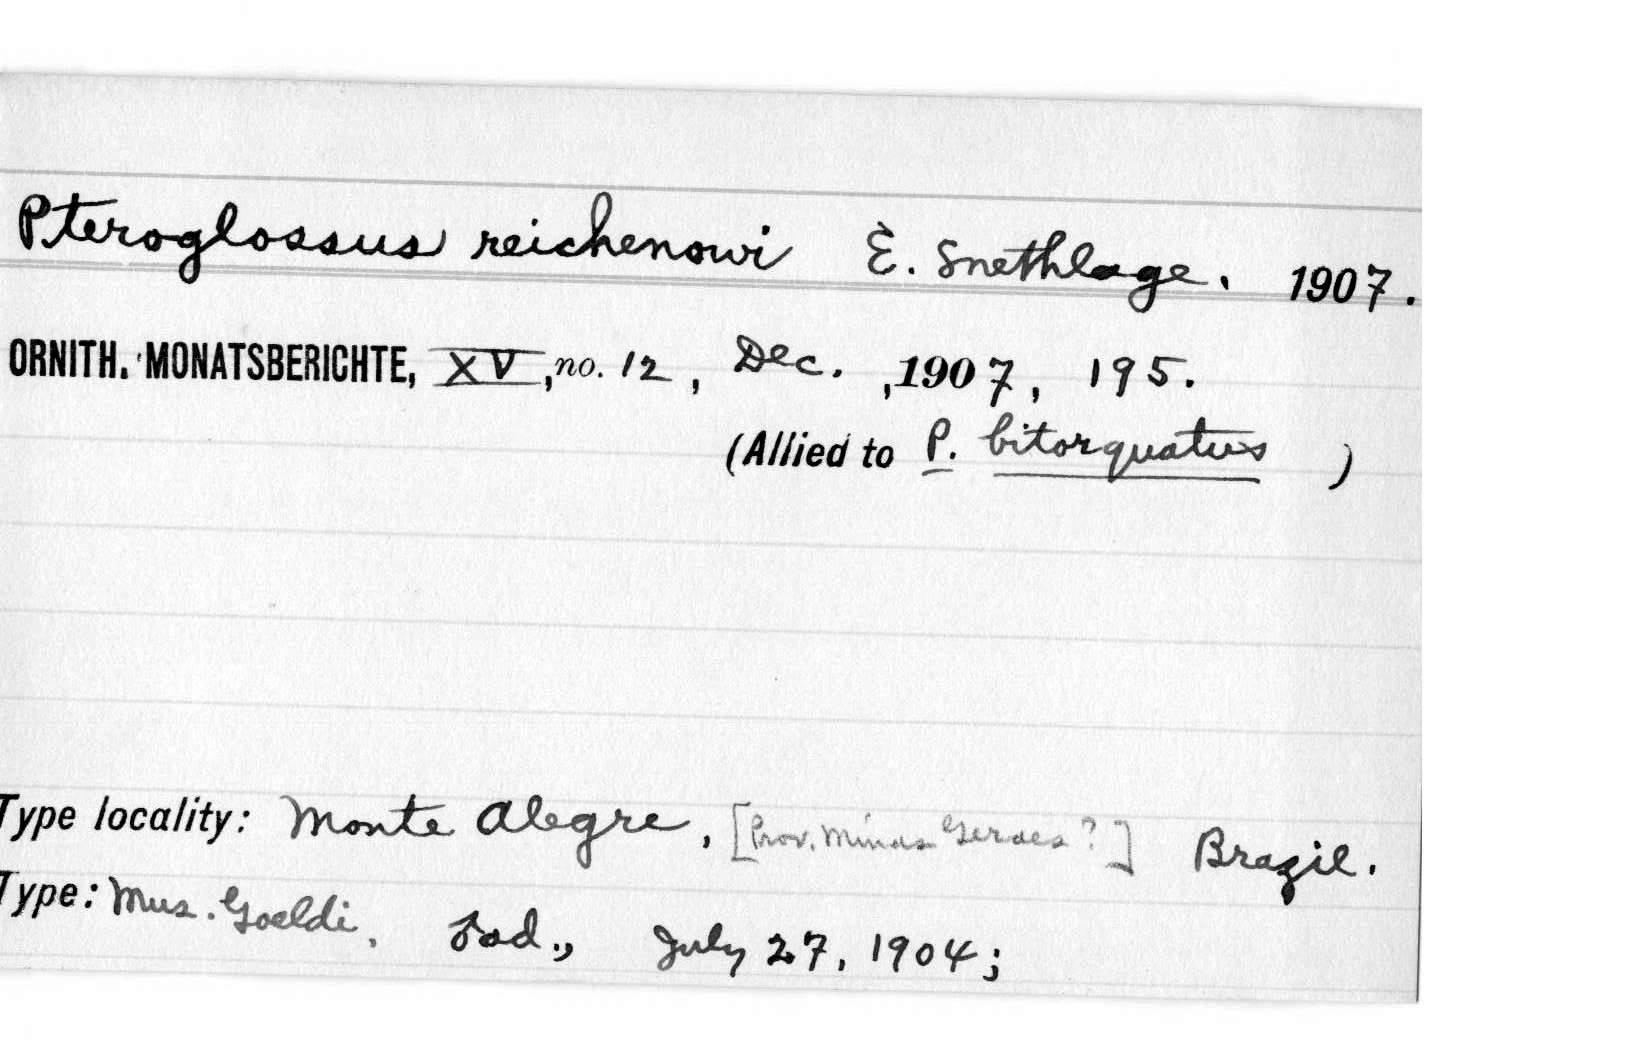 Pteroglossus reichenowi E. Snethlage. 1907.
ORNITH. MONATSBERICHTE, XV, no. 12, Dec., 1907, 195.
(Allied to P. bitorquatus )
Type locality: Monte Alegre, [Prov. Minas Geraes?] Brazil.
Type: Mus. Goeldi, ad., July 27, 1904;